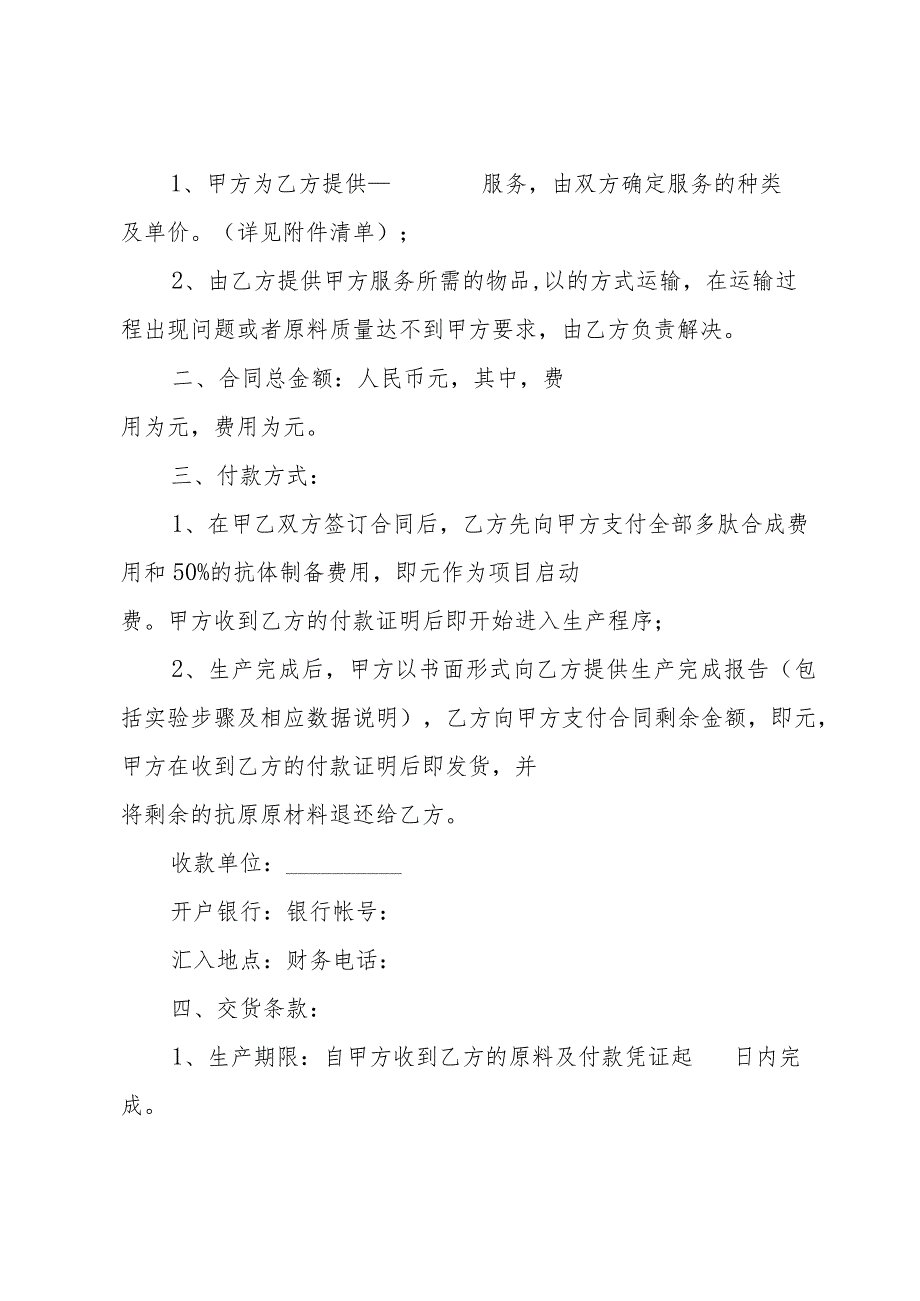 1、甲方为乙方提供— 服务，由双方确定服务的种类
及单价。（详见附件清单）；
2、由乙方提供甲方服务所需的物品,以的方式运输，在运输过
程出现问题或者原料质量达不到甲方要求，由乙方负责解决。
二、合同总金额：人民币元，其中，费
用为元，费用为元。
三、付款方式：
1、在甲乙双方签订合同后，乙方先向甲方支付全部多肽合成费
用和50%的抗体制备费用，即元作为项目启动
费。甲方收到乙方的付款证明后即开始进入生产程序；
2、生产完成后，甲方以书面形式向乙方提供生产完成报告（包
括实验步骤及相应数据说明），乙方向甲方支付合同剩余金额，即元，
甲方在收到乙方的付款证明后即发货，并
将剩余的抗原原材料退还给乙方。
收款单位：__________
开户银行：银行帐号：
汇入地点：财务电话：
四、交货条款：
1、生产期限：自甲方收到乙方的原料及付款凭证起 日内完
成。